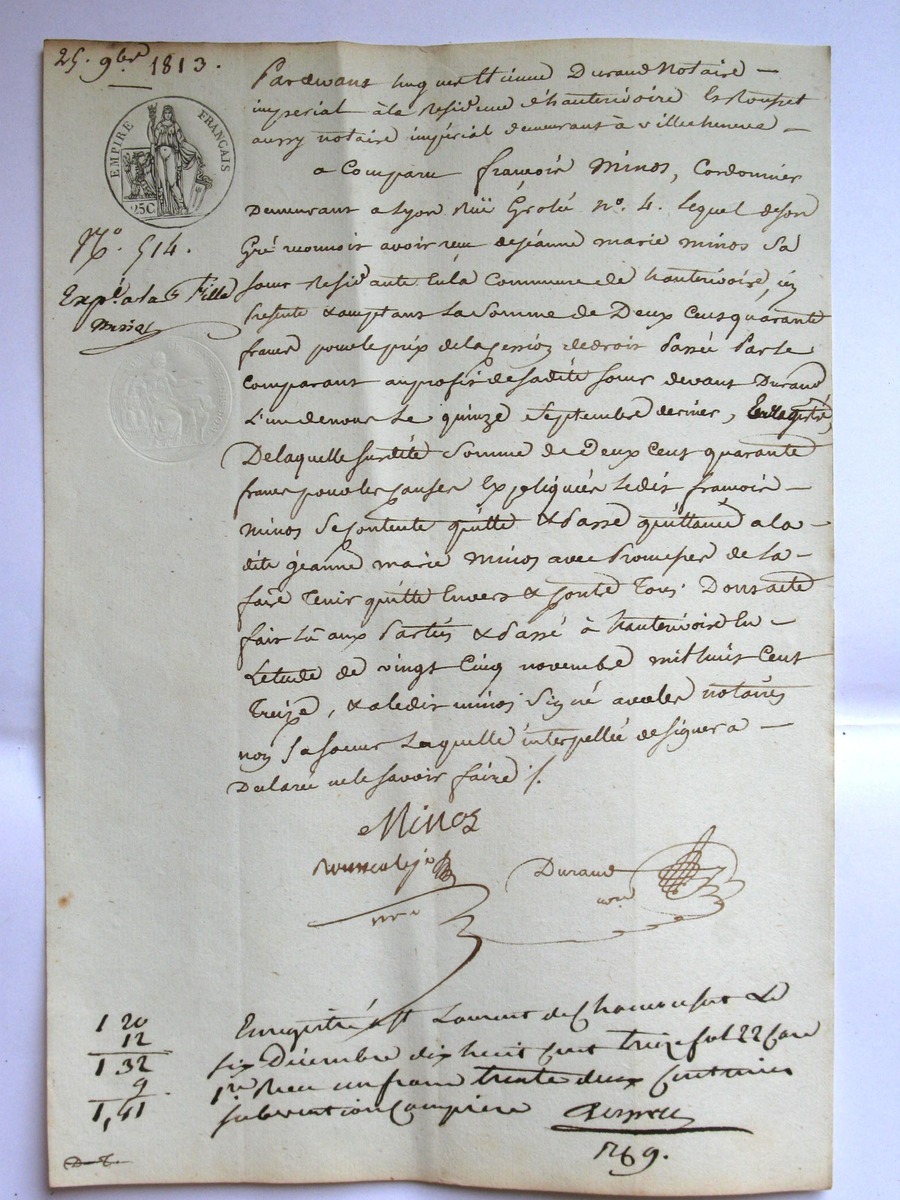 25. 9bre 1813.
EMPIRE FRANÇAIS
25C
N.° 514.
Expé. a la fille
Pardevant hugues Etienne Durand Notaire
imperial à la Residence d'hauterivoire Et Rousset
aussy notaire impérial demeurant à villecheneve
a Comparu françois Minos, Cordonnier
Demeurant a Lyon Ruë Grolée n.° 4. lequel de son
Gré reconnoit avoir recu de jéanne marie minos Sa
sœur Residante En la Commune de hauterivoire, icy
presente & acceptant La Somme de Deux Cent quarante
francs pour le prix de la Cession de droit Passée Par le
Comparant au profit de sa dite sœur devant Durand
L'un de nous Le quinze Septembre dernier, Enregistré,
De laquelle susdite Somme de Deux Cent quarante
francs pour les causes Expliquées Ledit francois
minos Se contente quitte & Passe quittance a la
dite jéanne marie Minos avec Promesse de la
faire Tenir quitte Envers & Contre Tous. Dont acte
fait Lû aux Parties & Passé à hauterivoire En
L'etude Le vingt Cinq novembre mil huit Cent
Treize, & a ledit minos Signé avec les notaires
non Sa sœur Laquelle interpellée de signer a
Declaré ne le savoir faire ./.
Minos
Durand
nre
Enregistré à St Laurent de Chamousset Le
six Décembre dix huit cent treize fol 22 Case
1re Recu un franc trente deux Centimes
subvention Comprise
1 20
12
1.32
9
1,41
169.